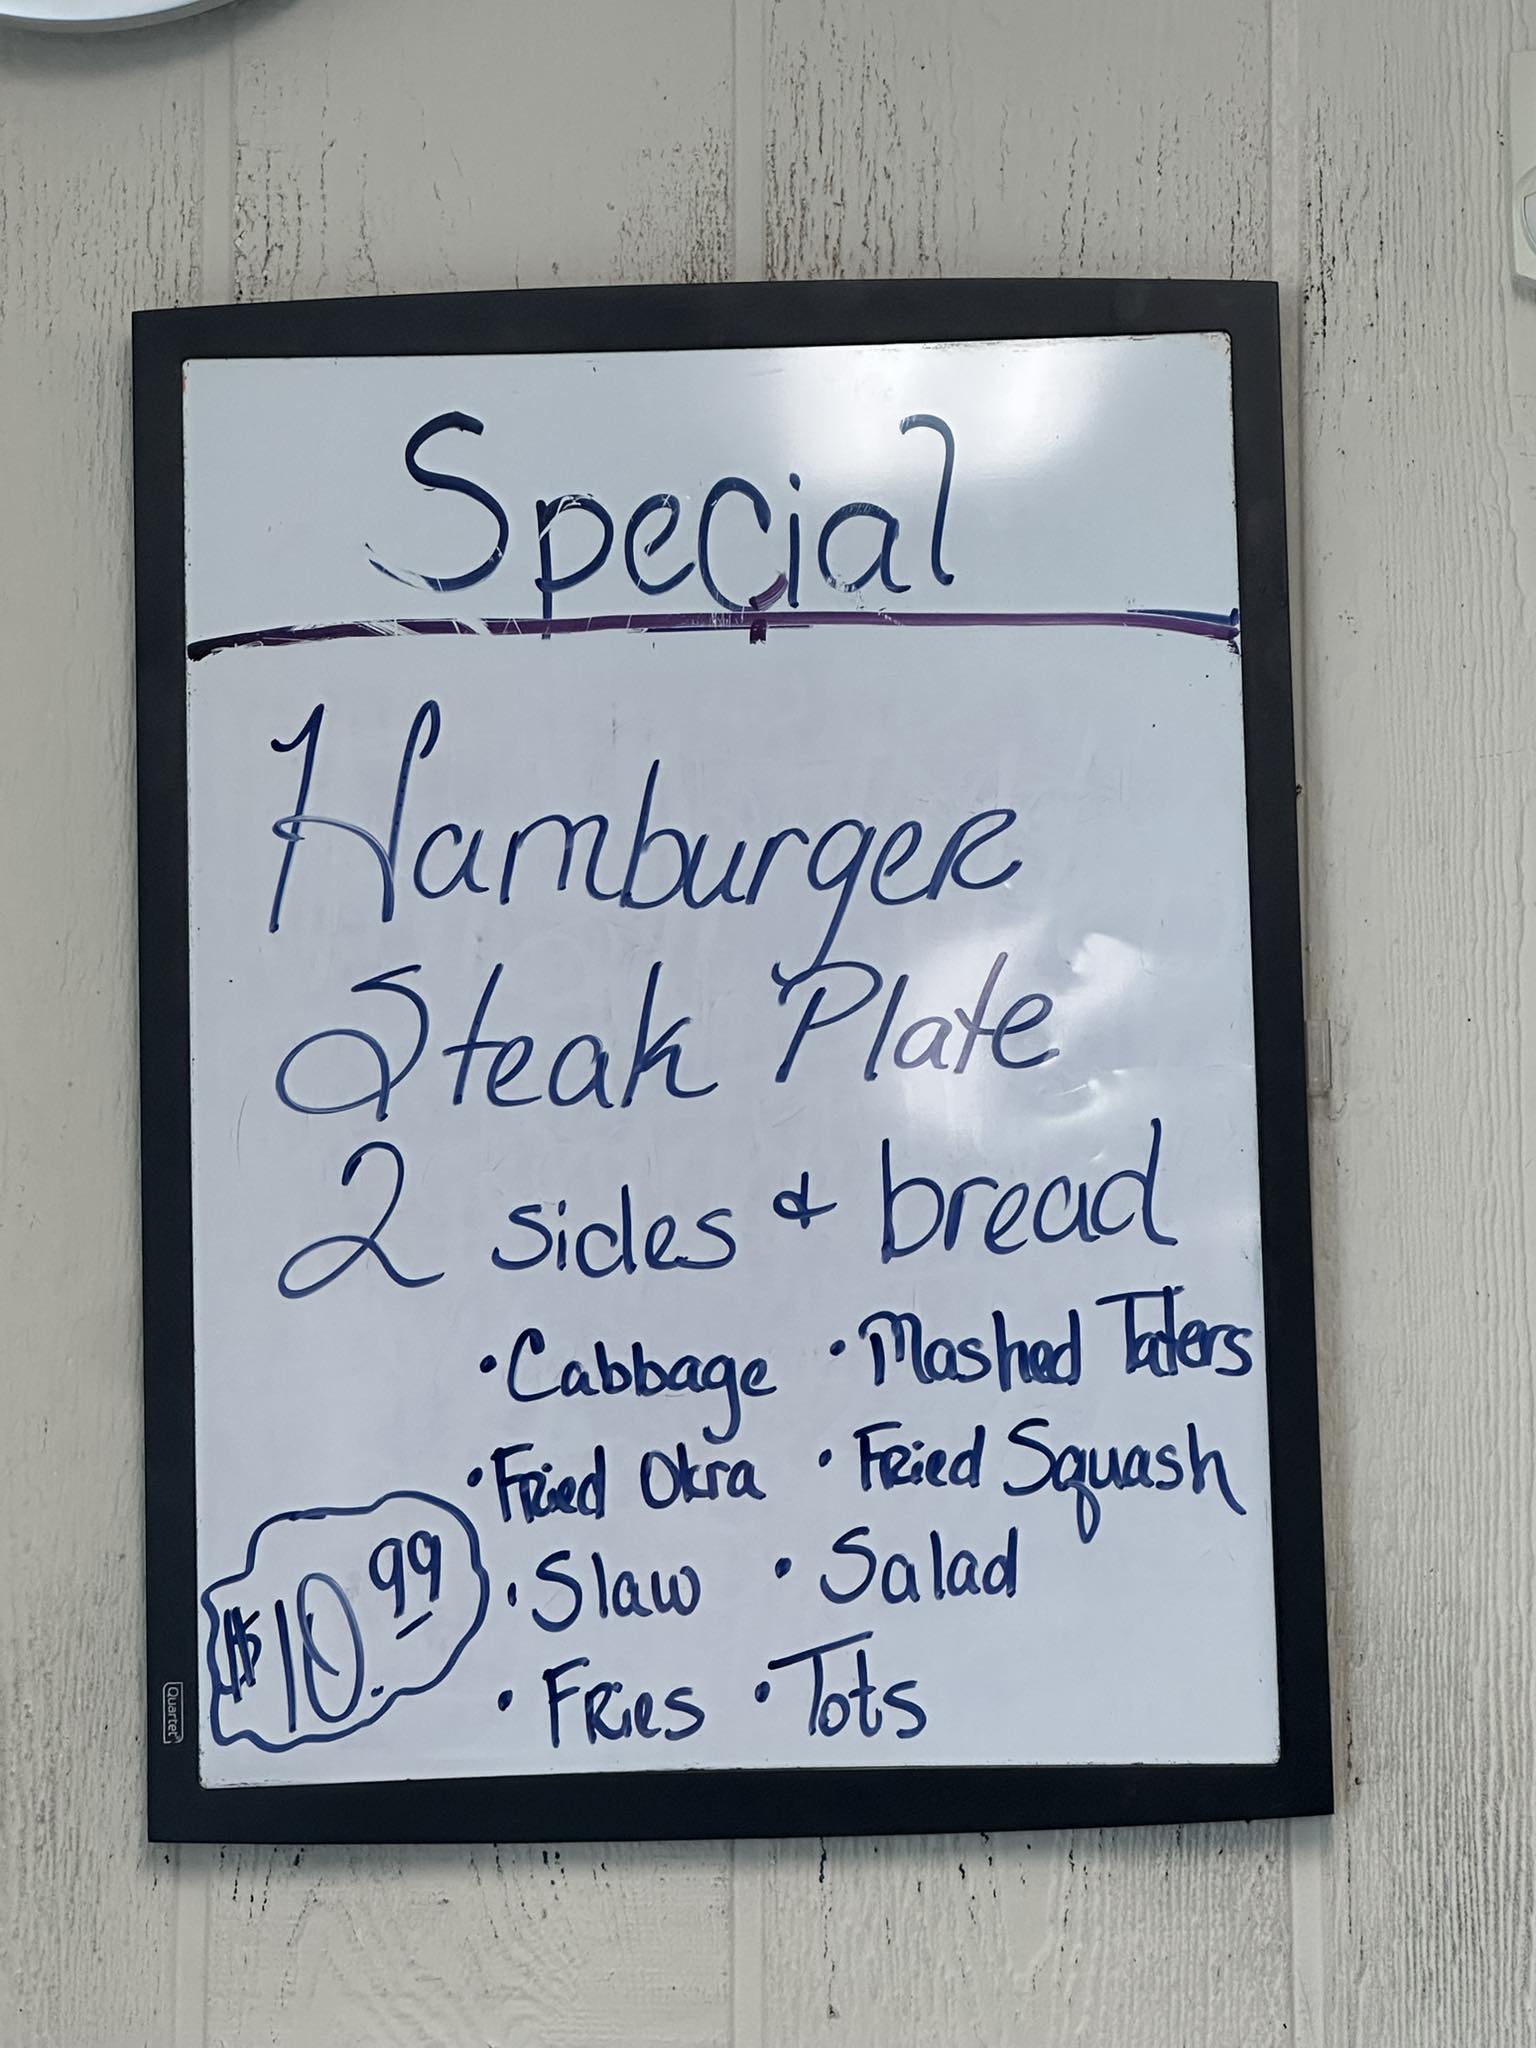 Special
Hamburger
Steak Plate
2 sides & bread
• Cabbage • Mashed Taters
• Fried Okra • Fried Squash
• Slaw • Salad
• Fries • Tots
$10.99
Quartet